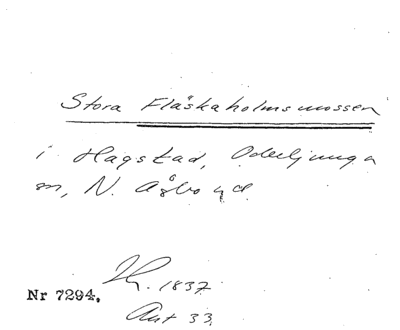 Stora Fläskaholmsmossen
i Hagstad, Oderljunga
sn, N. Åsbo hd.
1837
Nr 7294.
Akt 33.